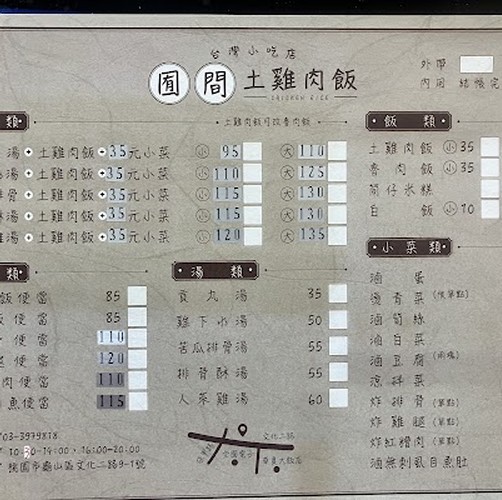 台灣小吃店
囿間 土雞肉飯
CHICKEN RICE
外帶
內用 結帳完
土雞肉飯可改魯肉飯
類
湯+土雞肉飯+35元小菜 小 95 大 110
湯+土雞肉飯+35元小菜 小 110 大 125
排骨+土雞肉飯+35元小菜 小 115 大 130
酥湯+土雞肉飯+35元小菜 小 115 大 130
雞湯+土雞肉飯+35元小菜 小 120 大 135
飯類
土雞肉飯 小 35
魯肉飯 小 35
筒仔米糕
白飯 小 10
類
飯便當 85
飯便當 85
便當 110
便當 120
肉便當 110
魚便當 115
湯類
貢丸湯 35
雞下水湯 50
苦瓜排骨湯 55
排骨酥湯 55
人蔘雞湯 60
小菜類
滷蛋
燙青菜(候單點)
滷筍絲
滷白菜
滷豆腐
涼拌菜
炸排骨(單點)
炸雞腿(單點)
炸紅糟肉(單點)
滷無刺虱目魚肚
03-3979818
10:30-14:00,16:00-20:00
桃園市龜山區文化二路9-1號
文化二路